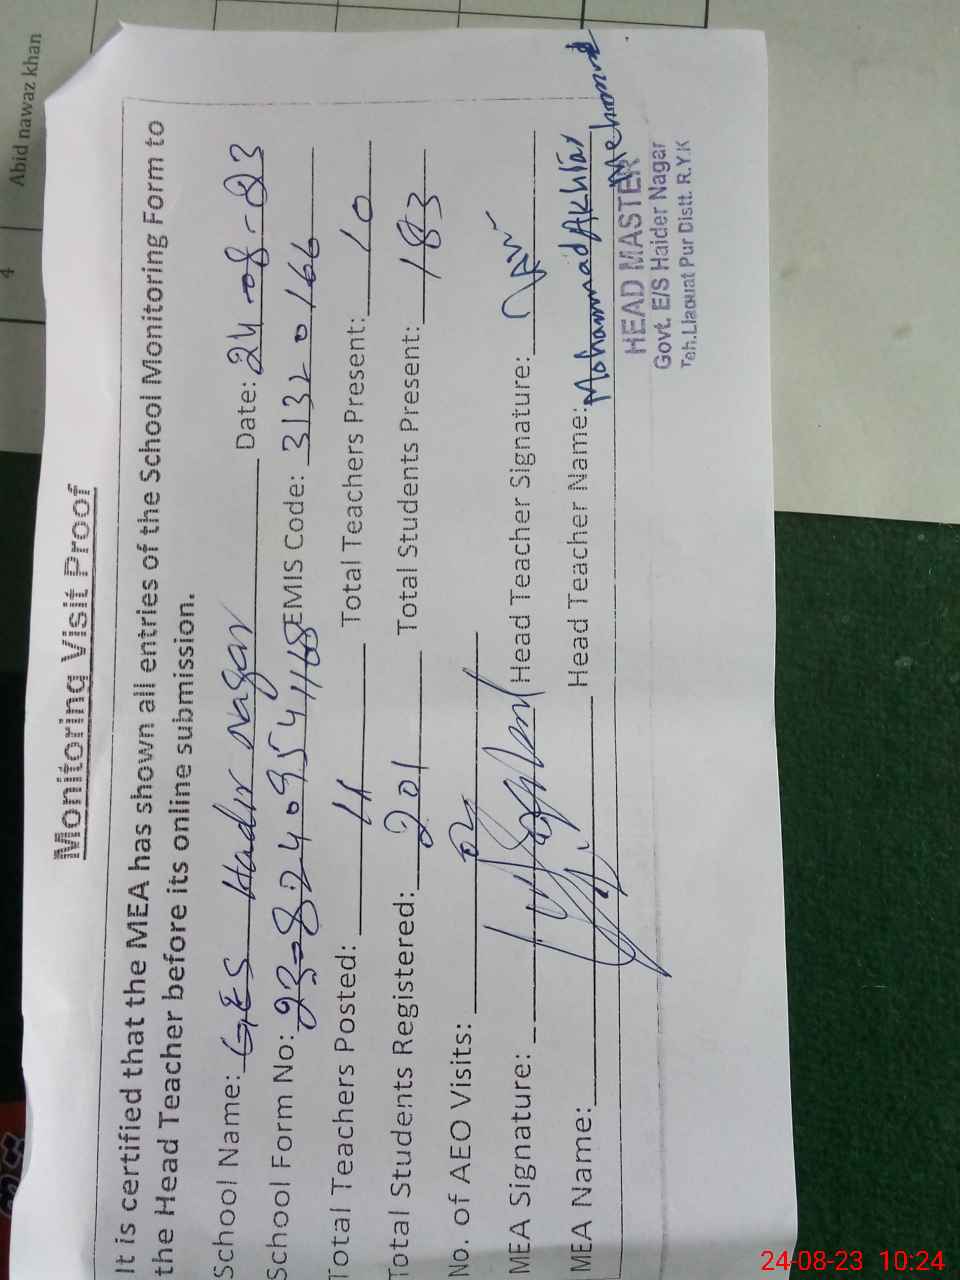 4 Abid nawaz khan
Monitoring Visit Proof
It is certified that the MEA has shown all entries of the School Monitoring Form to
the Head Teacher before its online submission.
School Name: GES Hadir Nagar Date: 24-08-23
School Form No: 23-82409541168 EMIS Code: 31320166
Total Teachers Posted: 11 Total Teachers Present: 10
Total Students Registered: 201 Total Students Present: 183
No. of AEO Visits: 02
MEA Signature: Head Teacher Signature:
MEA Name: Head Teacher Name: Mohammad Akhtar
Mehmood
HEAD MASTER
Govt. E/S Haider Nagar
Teh.Liaquat Pur Distt. R.Y.K
24-08-23 10:24